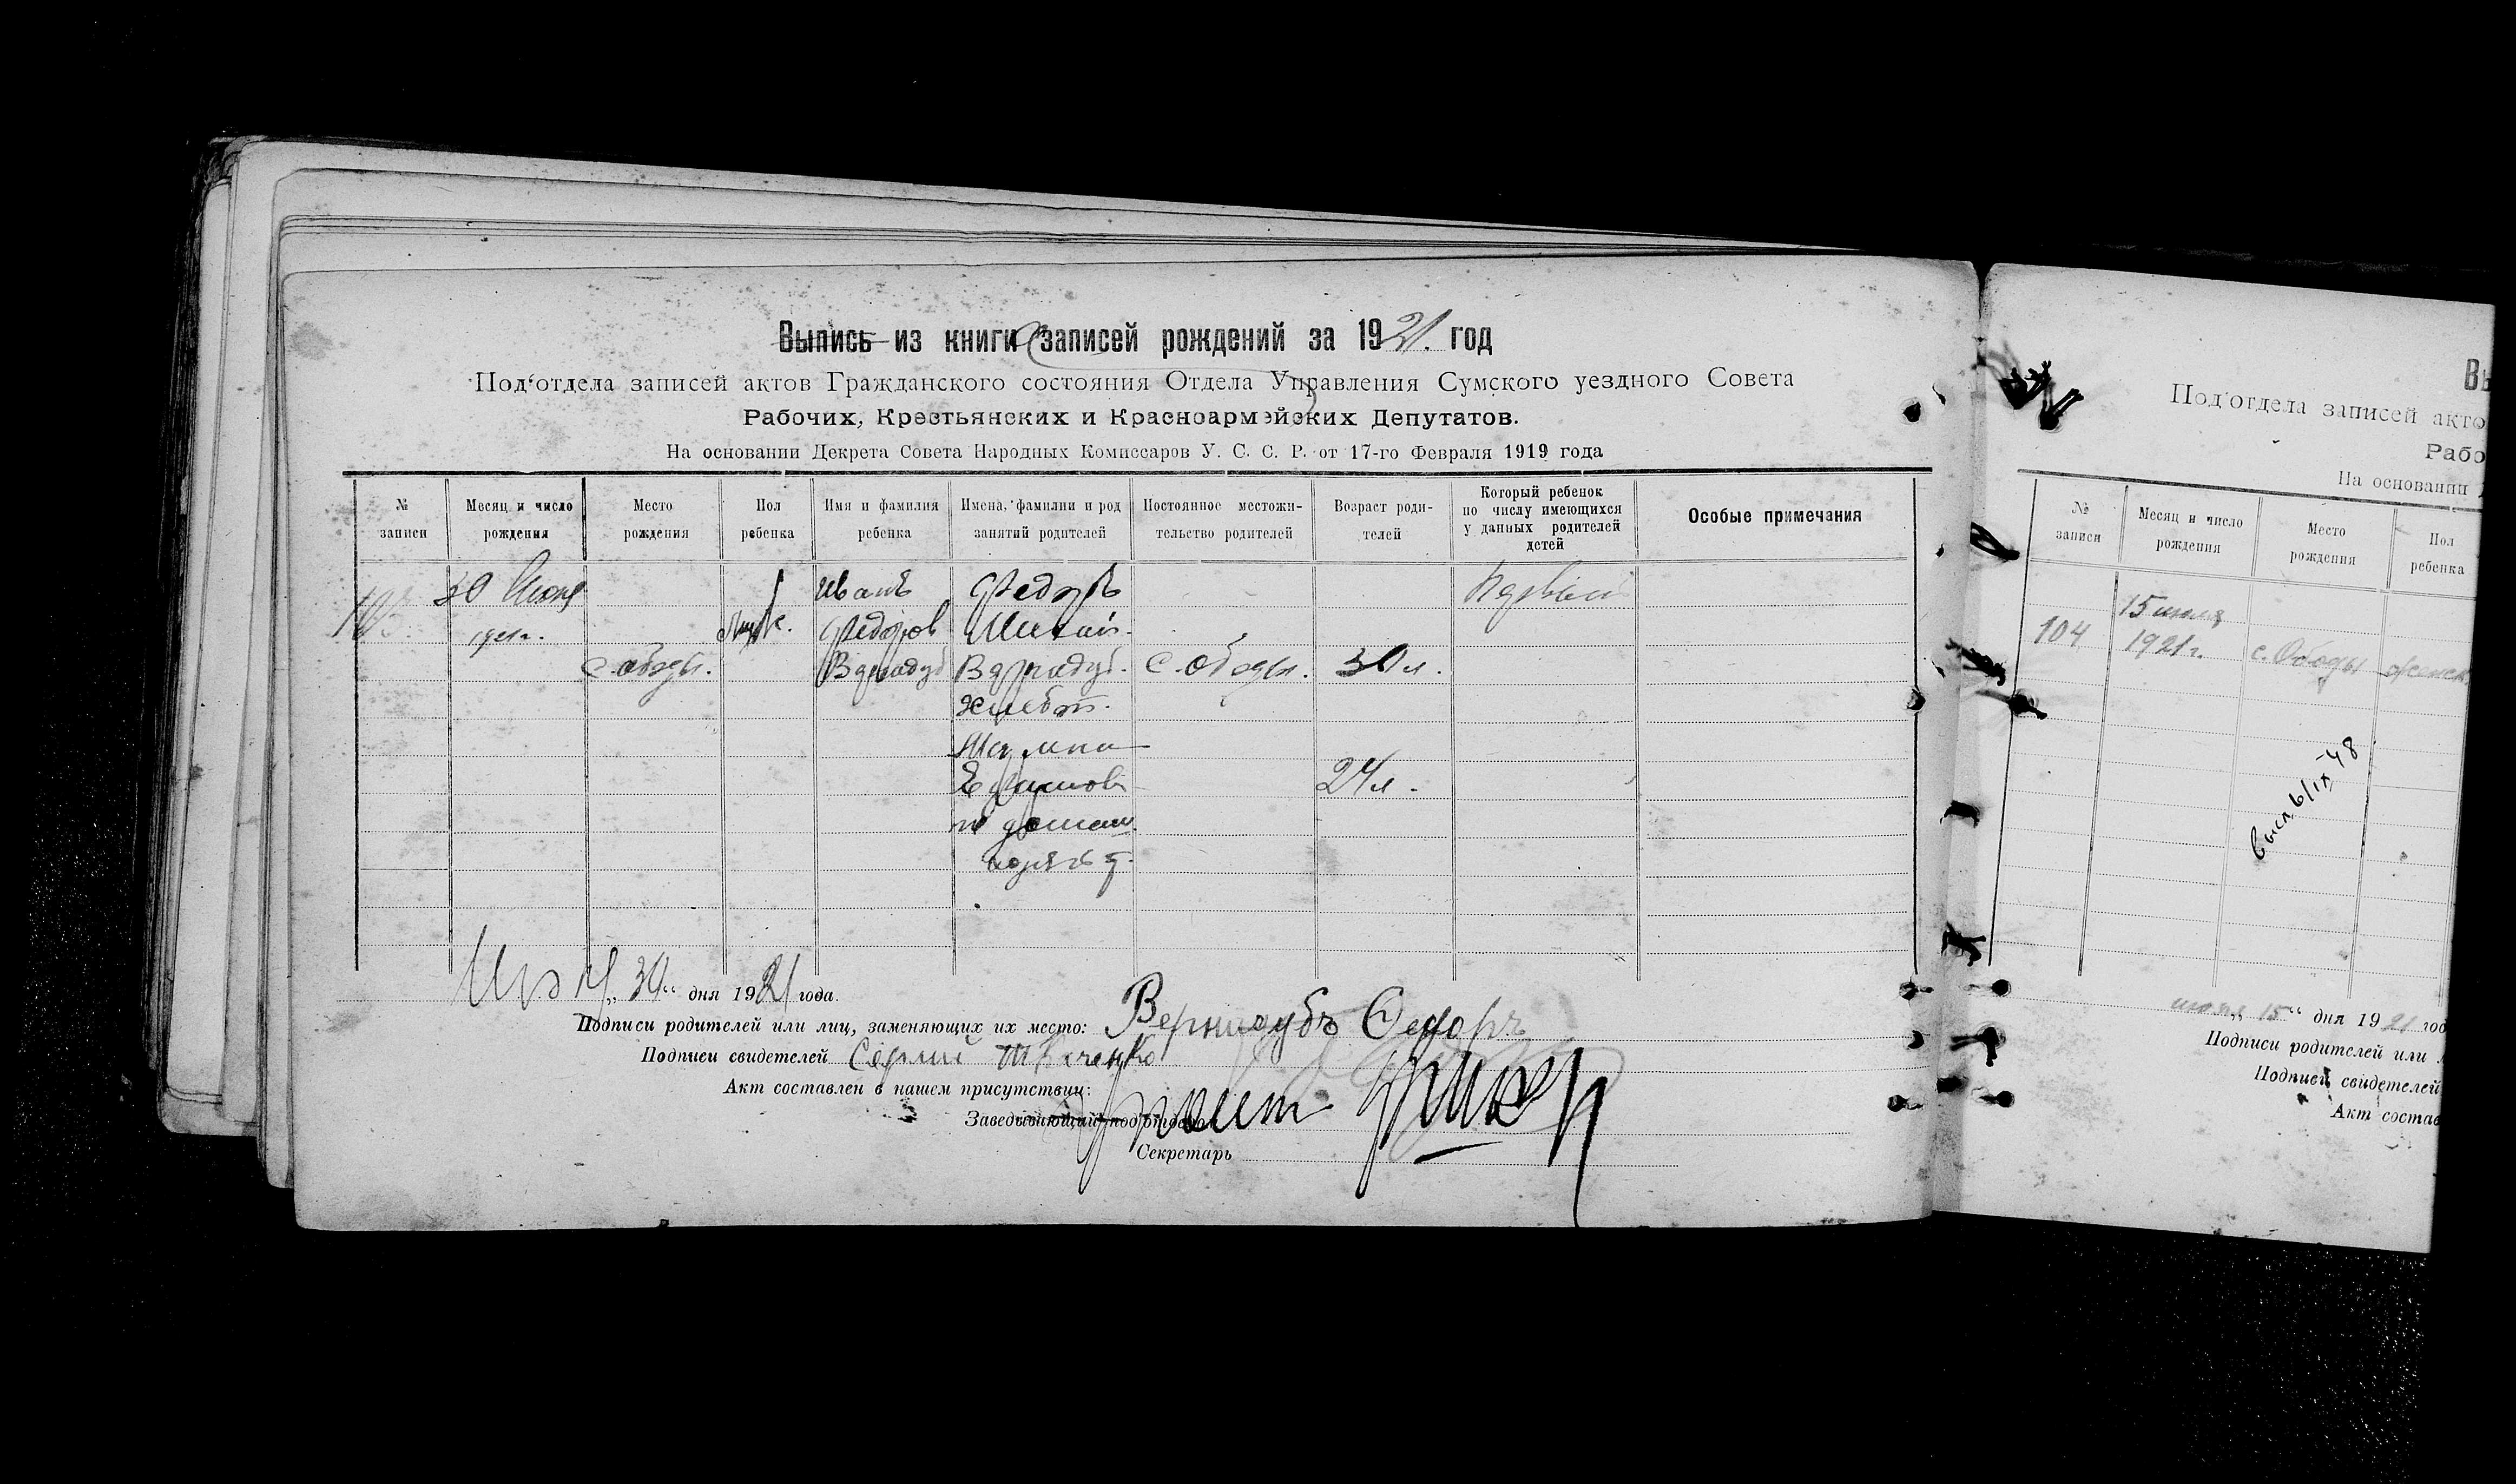 Выпись из книги записей рождений за 1921. год
Под'отдела записей актов Гражданского состояния Отдела Управления Сумского уездного Совета
Рабочих, Крестьянских и Красноармейских Депутатов.
На основании Декрета Совета Народных Комиссаров У. С. С. Р. от 17-го Февраля 1919 года
№ записи
Месяц и число рождения
Место рождения
Пол ребенка
Имя и фамилия ребенка
Имена, фамилии и род занятий родителей
Постоянное местожительство родителей
Возраст родителей
Который ребенок по числу имеющихся у данных родителей детей
Особые примечания
103.
30 Июня
1921 г.
с. ободы.
муж.
Иванъ
Федоров
Вернидуб
Федоръ
Вернидуб.
хлебоп.
с. ободы.
30 л.
24 л.
Первый
30 " дня 1921 года.
Подписи родителей или лиц, заменяющих их место: Вернидубъ Федоръ
Подписи свидетелей Сергий Ткаченко
Акт составлен в нашем присутствии:
Заведывающий под'отделом
Секретарь
Вы
Под'отдела записей акто
Рабо
На основании
№ записи
Месяц и число рождения
Место рождения
Пол ребенка
104
15 июля
1921 г.
с. Ободы
женск.
Высл. 6/IX-48
июля " 15 " дня 1921 год
Подписи родителей или л
Подписи свидетелей
Акт состав